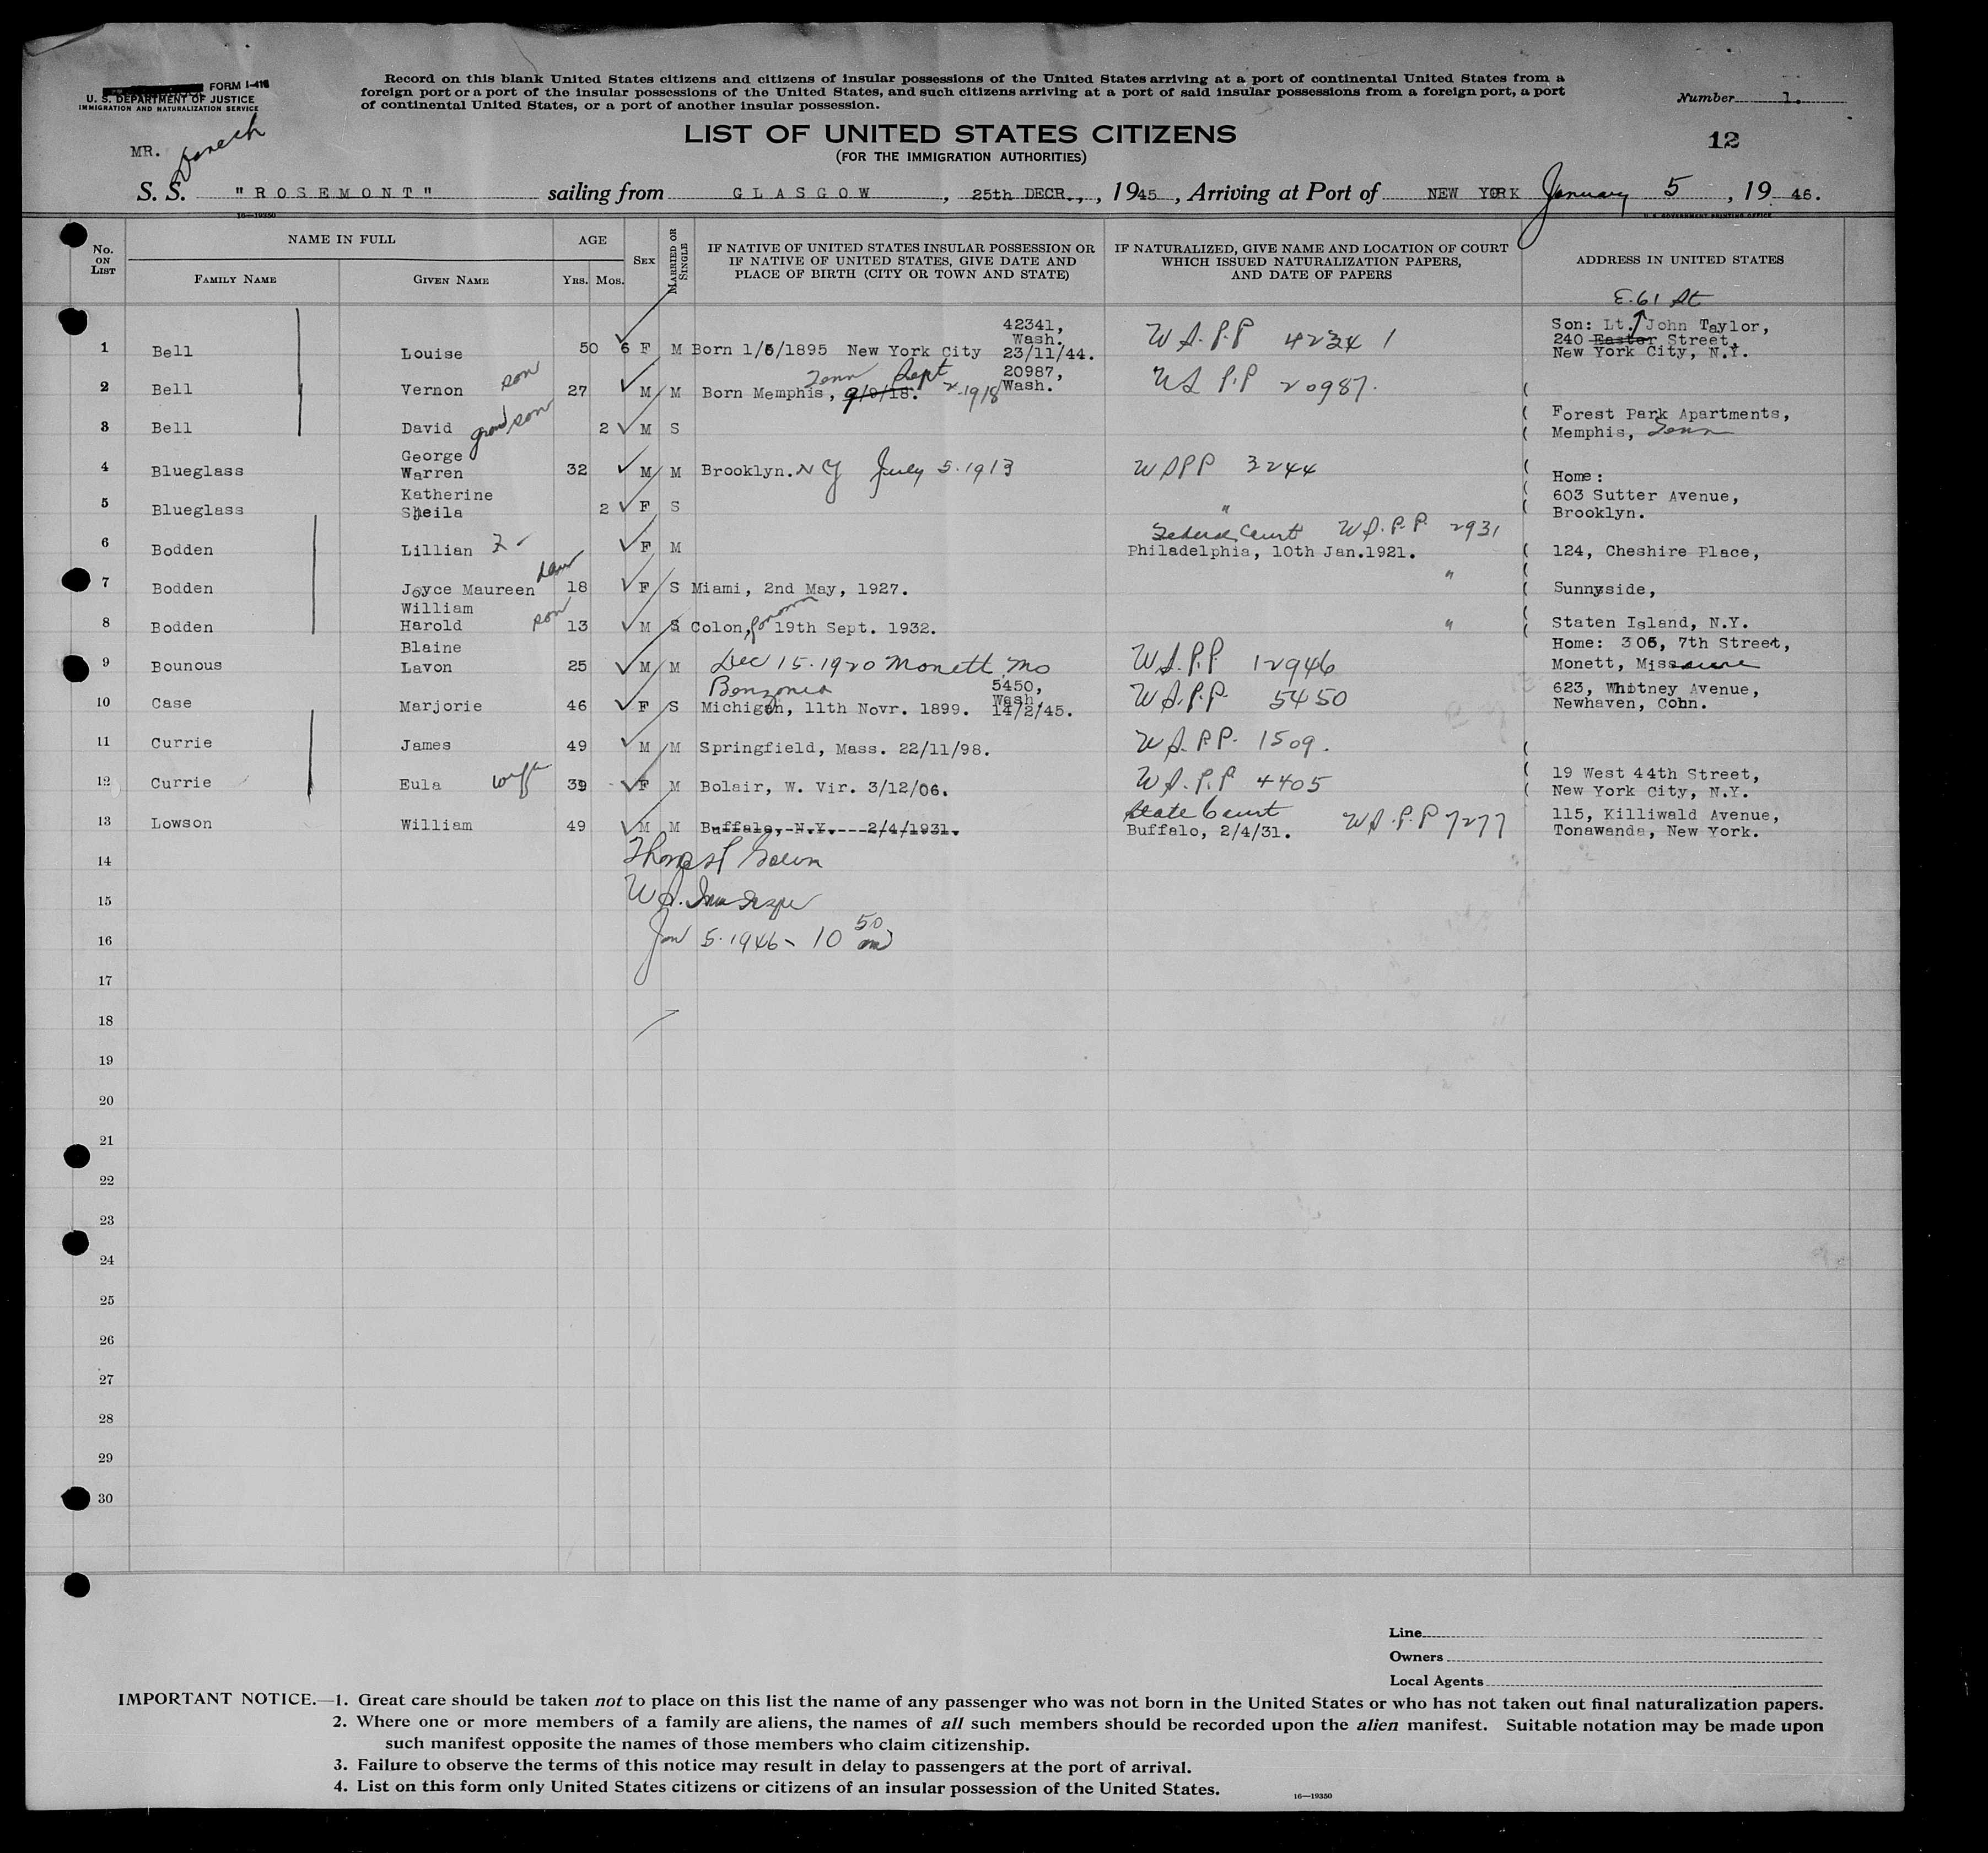 FORM I-416
U. S. DEPARTMENT OF JUSTICE
IMMIGRATION AND NATURALIZATION SERVICE
Record on this blank United States citizens and citizens of insular possessions of the United States arriving at a port of continental United States from a
foreign port or a port of the insular possessions of the United States, and such citizens arriving at a port of said insular possessions from a foreign port, a port
of continental United States, or a port of another insular possession.
Number 1.
12
LIST OF UNITED STATES CITIZENS
(FOR THE IMMIGRATION AUTHORITIES)
MR.
S. S. "ROSEMONT" sailing from GLASGOW, 25th DECR., , 1945, Arriving at Port of NEW YORK January 5, 19 46.
16—19350 U. S. GOVERNMENT PRINTING OFFICE
No. ON LIST NAME IN FULL FAMILY NAME GIVEN NAME AGE YRS. MOS. SEX MARRIED OR SINGLE
IF NATIVE OF UNITED STATES INSULAR POSSESSION OR
IF NATIVE OF UNITED STATES, GIVE DATE AND
PLACE OF BIRTH (CITY OR TOWN AND STATE)
IF NATURALIZED, GIVE NAME AND LOCATION OF COURT
WHICH ISSUED NATURALIZATION PAPERS,
AND DATE OF PAPERS
ADDRESS IN UNITED STATES
E. 61 St
1 Bell Louise 50 6 F M Born 1/6/1895 New York City 42341, Wash. 23/11/44. W S. P.P 42341 Son: Lt. John Taylor, 240 Easter Street, New York City, N.Y.
2 Bell Vernon son 27 M M Born Memphis, Tenn 9/9/18. Sept 2-1918 20987, Wash. US P.P 20987.
3 Bell David grandson 2 M S Forest Park Apartments, Memphis, Tenn
4 Blueglass George Warren 32 M M Brooklyn. NY July 5. 1913 USPP 3244 Home:
5 Blueglass Katherine Sheila 2 F S " 603 Sutter Avenue, Brooklyn.
6 Bodden Lillian F M Federal Court U S. P. P. 2931 Philadelphia, 10th Jan.1921. 124, Cheshire Place,
7 Bodden Joyce Maureen dau 18 F S Miami, 2nd May, 1927. " Sunnyside,
8 Bodden William Harold son 13 M S Colon, Panama 19th Sept. 1932. " Staten Island, N.Y.
9 Bounous Blaine Lavon 25 M M Dec 15. 1920 Monett, Mo U S. P.P. 12946 Home: 306, 7th Street, Monett, Missouri
10 Case Marjorie 46 F S Benzonia Michigan, 11th Novr. 1899. 5450, Wash. 14/2/45. U S. P.P. 5450 623, Whitney Avenue, Newhaven, Conn.
11 Currie James 49 M M Springfield, Mass. 22/11/98. U S. P P. 1509.
12 Currie Eula wife 39 F M Bolair, W. Vir. 3/12/06. U S. P.P 4405 19 West 44th Street, New York City, N.Y.
13 Lowson William 49 M M Buffalo, N.Y. 2/4/1931. State Court Buffalo, 2/4/31. U S. P. P 7277 115, Killiwald Avenue, Tonawanda, New York.
14
15 U S.
16 Jan 5. 1946 - 10 50 am
17
18
19
20
21
22
23
24
25
26
27
28
29
30
Line
Owners
Local Agents
IMPORTANT NOTICE.—1. Great care should be taken not to place on this list the name of any passenger who was not born in the United States or who has not taken out final naturalization papers.
2. Where one or more members of a family are aliens, the names of all such members should be recorded upon the alien manifest. Suitable notation may be made upon
such manifest opposite the names of those members who claim citizenship.
3. Failure to observe the terms of this notice may result in delay to passengers at the port of arrival.
4. List on this form only United States citizens or citizens of an insular possession of the United States.
16—19350